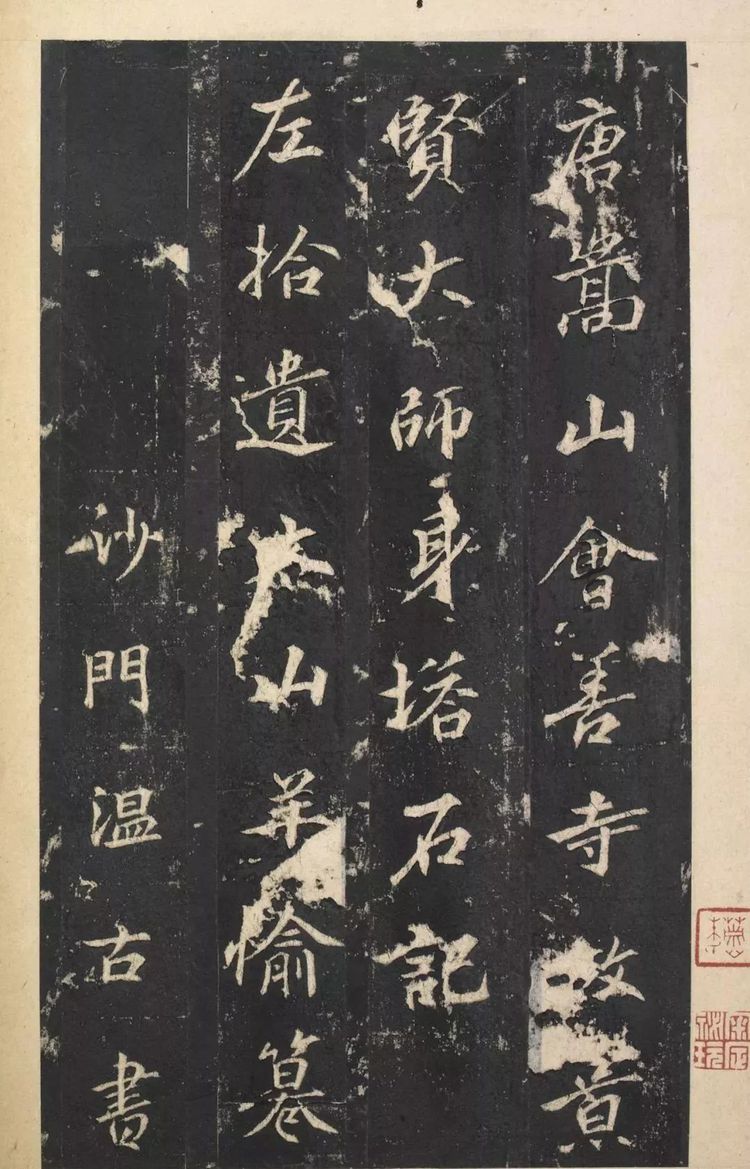 唐嵩山會善寺故景
賢大師身塔石記
左拾遺太山羊愉纂
沙門温古書